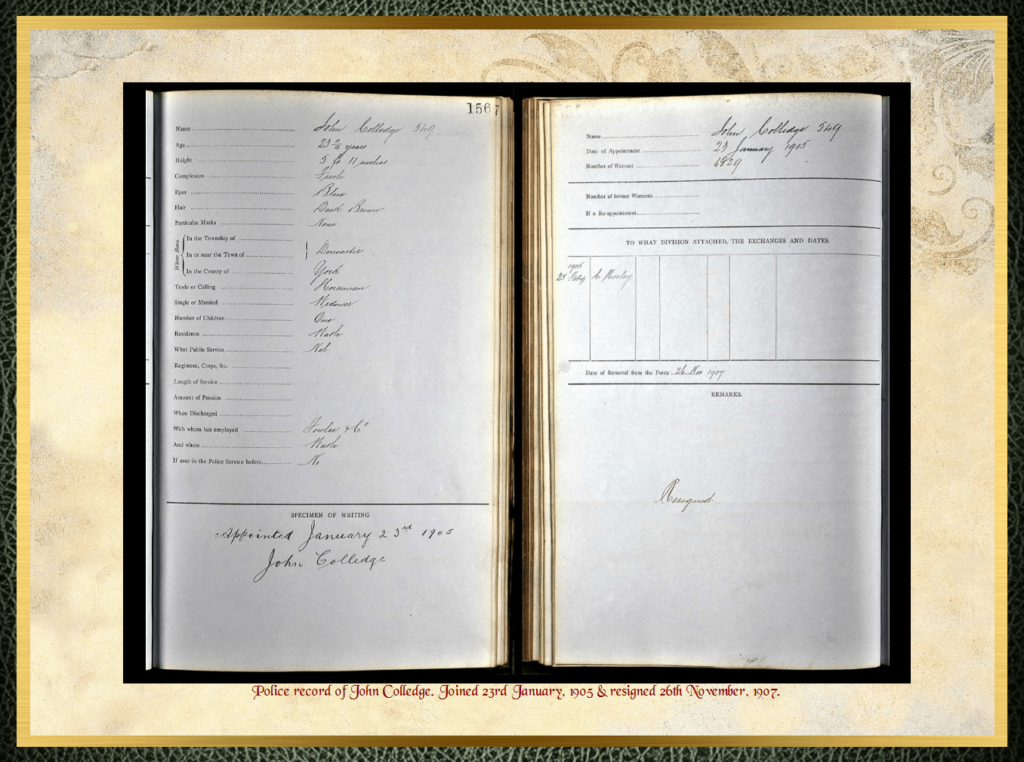 1567
Name John Colledge 549
Age 23 ½ years
Height 5 ft 11 inches
Complexion Fresh
Eyes Blue
Hair Dark Brown
Particular Marks None
Where Born.
In the Township of
In or near the Town of Doncaster
In the County of York
Trade or Calling Horseman
Single or Married Widower
Number of Children One
Residence
What Public Service Nil
Regiment, Corps, &c.
Length of Service
Amount of Pension
When Discharged
With whom last employed Fowler & Co
And where
If ever in the Police Service before No
SPECIMEN OF WRITING.
Appointed January 23rd 1905
John Colledge
Name John Colledge 549
Date of Appointment 23 January 1905
Number of Warrant 6829
Number of former Warrants
If a Re-appointment
TO WHAT DIVISION ATTACHED, THE EXCHANGES AND DATES.
1905
23 Feby A.
Date of Removal from the Force 26 Nov 1907
REMARKS.
Resigned
Police record of John Colledge. Joined 23rd January, 1905 & resigned 26th November, 1907.